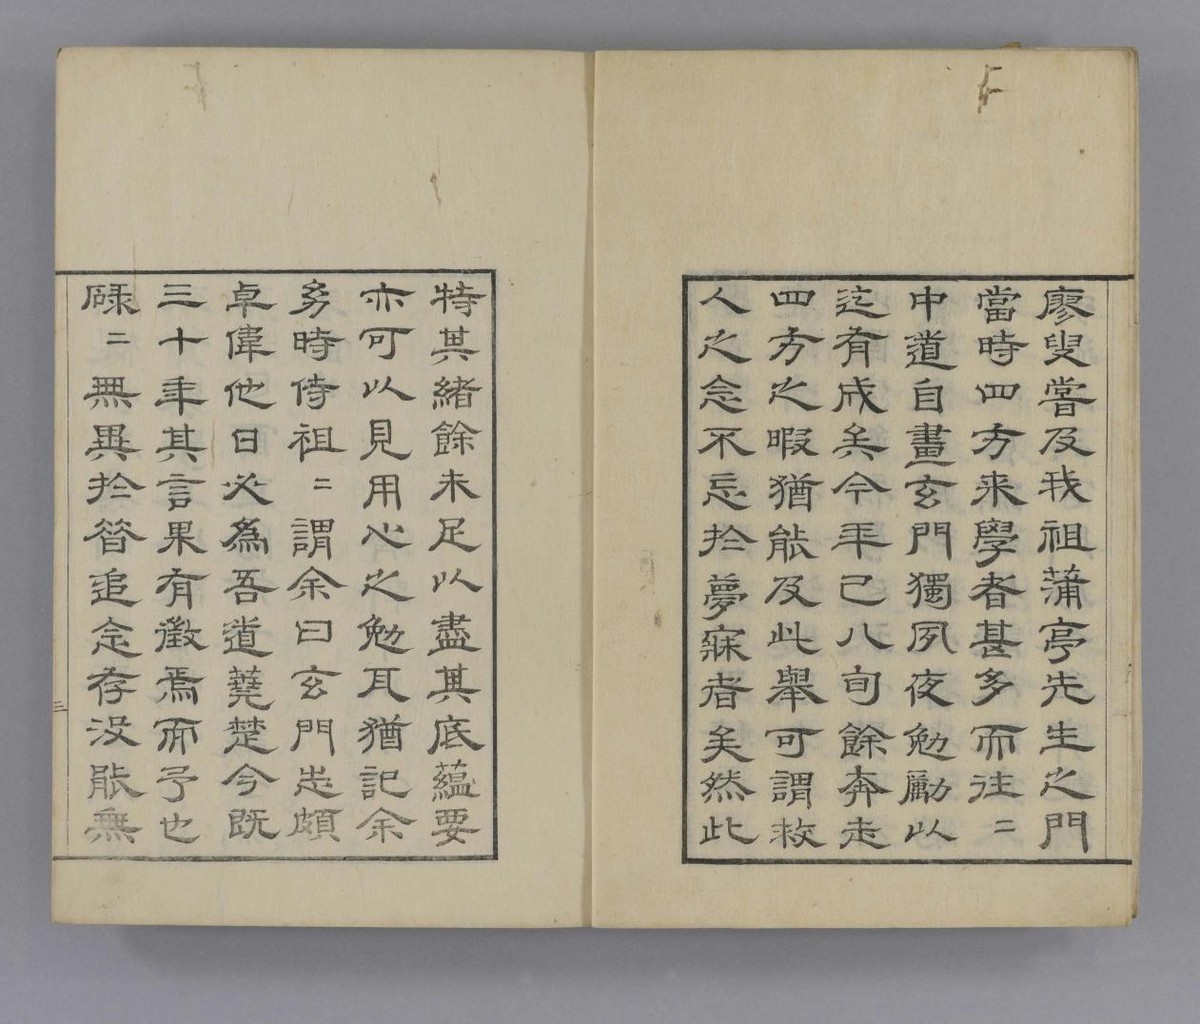 廖叟嘗及我祖蒲亭先生之門
當時四方来學者甚多而往二
中道自畫玄門獨夙夜勉勵以
迄有成矣今年已八旬餘奔走
四方之暇猶能及此舉可謂救
人之念不忘於夢寐者矣然此
特其緒餘未足以盡其底蘊要
亦可以見用心之勉耳猶記余
多時侍祖二謂余曰玄門志頗
卓偉他日必為吾道蕘楚今既
三十年其言果有徵焉而予也
碌二無異於昝追念存没能無
三